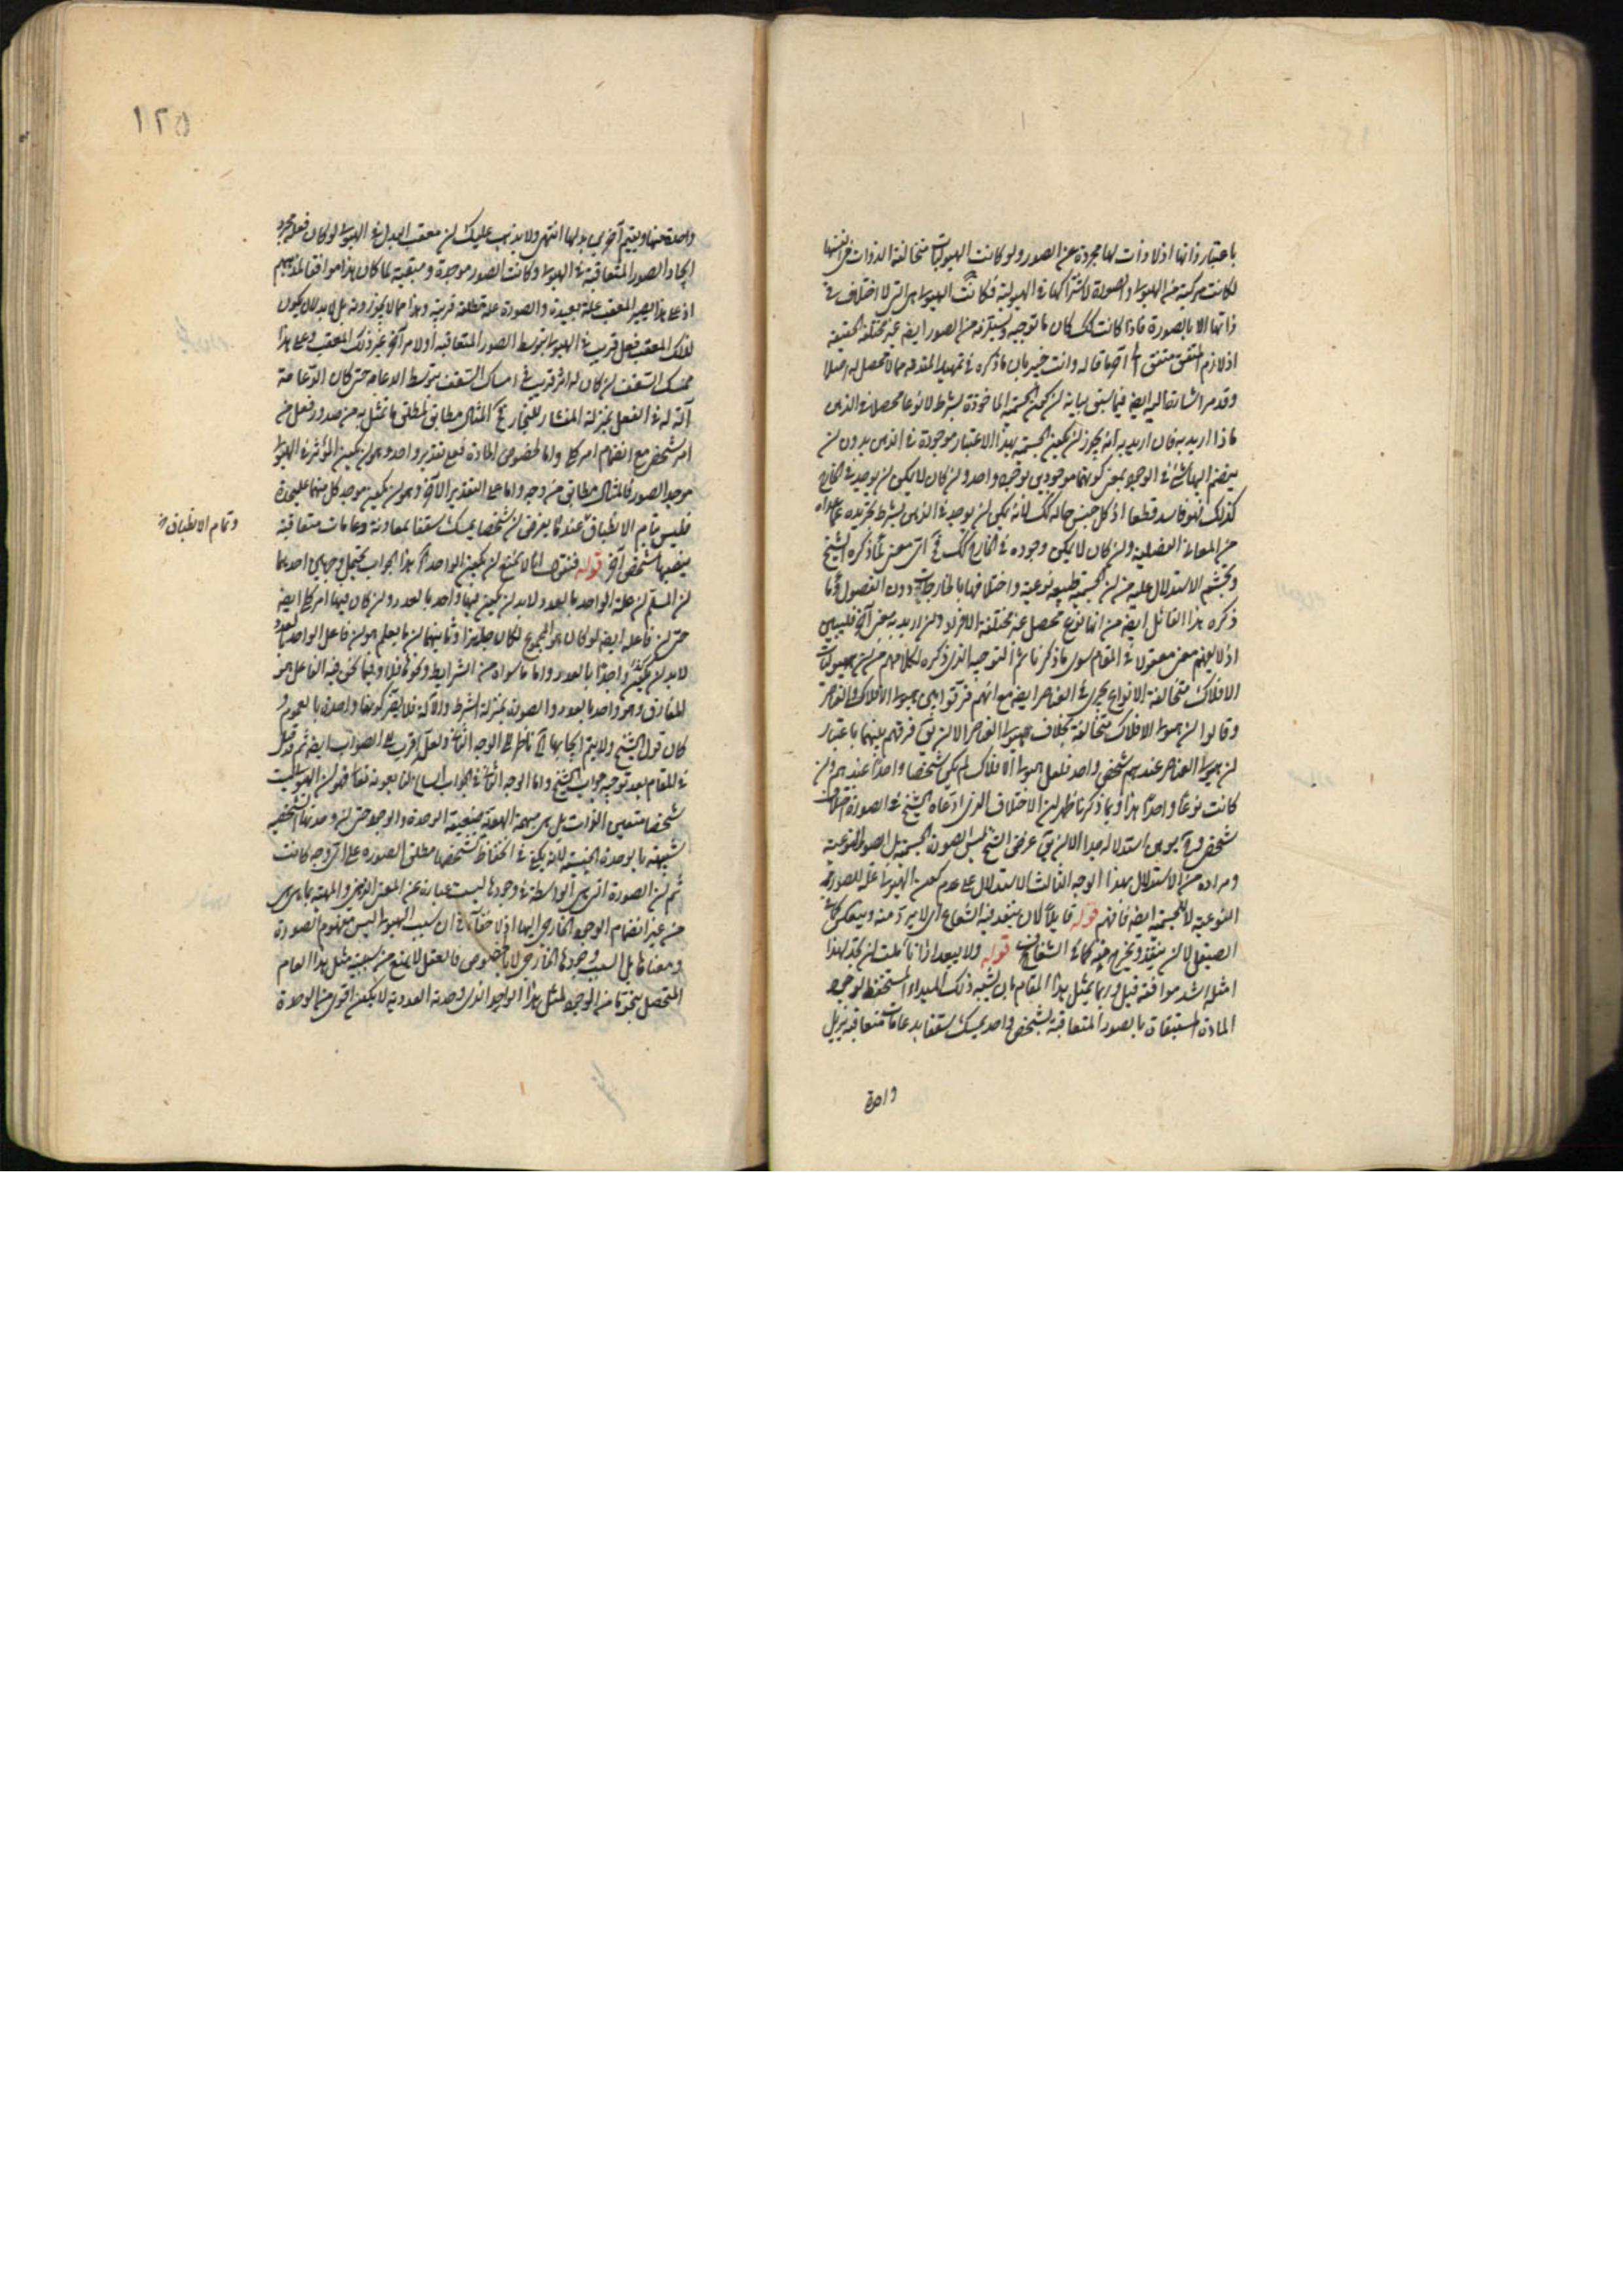 باعتبار ذاتها اذ لا ذات لها مجردة عن الصور ولو كانت الهيوليات متخالفة الذوات في انفسها
لكانت مركبة من الهيولى والصورة لاشتراكها في الهيولية فكانت الهيولى هي التي لا اختلاف في
ذاتها الا بالصورة فاذا كانت كك كان ما توجبه وتستلزمه من الصور ايضا غير مختلفة الحقيقة
اذ لازم المتفق متفق وانت خبير بان ما ذكره في تمهيد المقدمة مما لا تحصل له اصلا
وقد مر اشارة اليه ايضا فيما سبق بيانه لن الجسمية الماخوذة بشرط لا نوعا محصلا في الذهن
ماذا اريد به فان اريد به انه يجوز لن يكون الجسمية بهذا الاعتبار موجودة في الذهن بدون لن
ينضم اليها شئ في الوجود بمعنى كونهما موجودين بوجود واحد ولن كان لا يمكن لن يوجد في الخارج
كذلك فهو فاسد قطعا اذ كل جنس حاله كك فانه يمكن لن يوجد في الذهن بشرط تجريده عما عداه
من المعاني الفصلية ولن كان لا يمكن وجوده في الخارج كك اى معنى لما ذكره الشيخ
وتجشم الاستدلال عليه من لن الجسمية طبيعة نوعية واختلافها بالخارجات دون الفصول وما
ذكره هذا القائل ايضا من انها نوع محصل غير مختلفة الافراد ولن اريد به معنى آخر فليبين
اذ لا يفهم معنى معقول في المقام سوى ما ذكرنا ثم التوجيه الذي ذكره لكلامهم من لن هيوليات
الافلاك متخالفة الانواع يجرى في العناصر ايضا مع انهم فرقوا بين هيولى الافلاك والعناصر
وقالوا لن هيولى الافلاك متخالفة بخلاف هيولى العناصر الا لن يق فرقهم بينهما باعتبار
لن هيولى العناصر عندهم شخص واحد فلعل هيولى الافلاك لم يكن شخصا واحدا عندهم ولن
كانت نوعا واحدا هذا وبما ذكرنا ظهر لن الاختلاف الذي ادعاه الشيخ في الصورة
استدلاله جدا الا لن يق غرض الشيخ ليس الصورة الجسمية بل الصورة النوعية
ومراده من الاستدلال بهذا الوجه الثالث الاستدلال على عدم كون الهيولى علة للصورة
النوعية لا الجسمية ايضا فافهم قوله قابلا لان ينفد فيه الشعاع اى لا يرد منه وينعكس كما في
الصيقل لا لن ينفد ويخرج منه كما في الشفاف قوله ولا يبعد اذا تأملت لن تجد لهذا
امثلة اشد موافقة قيل وربما يمثل بهذا المقام بان يشبه ذلك المبدأ المستحفظ لوجود
المادة المستبقاة بالصور المتعاقبة بشخص واحد يمسك سقفا بدعامات متعاقبة يزيل
واحدة
١٢٥
واحدة منها ويقيم آخر بدلها انتهى ولا يذهب عليك لن معقب البدل في الهيولى لو كان فعله مجرد
ايجاد الصور المتعاقبة في الهيولى وكانت الصور موجدة ومبقية لما كان هذا موافقا لمذهبهم
اذ على هذا يصير المعقب علة بعيدة والصورة علة مطلقة قريبة وهذا مما لا يجوزونه بل لا بد لان يكون
لذلك المعقب فعل قريب في الهيولى بتوسط الصور المتعاقبة او لامر آخر غير ذلك المعقب وعلى هذا
ممسك السقف لن كان له اثر قريب في امساك السقف بتوسط الدعامة حتى كان الدعامة
آلة له في الفعل بمنزلة المنشار للنجار فالمثال مطابق لمطلق ما تمثل به من صدور فعل من
امر شخص مع انضمام امر كلى واما لخصوص المادة فعلى تقدير واحد وهو لن يكون المؤثر في الهيولى
موجد الصور فالمثال مطابق من وجه واما على التقدير الآخر وهو لن يكون موجد كل منهما عليحدة
فليس بتام الانطباق عندما يفرض لن شخصا يمسك سقفا بمعاونة دعامات متعاقبة
وتمام الانطباق
ينصبها شخص آخر قوله فنقول انا لا نمنع لن يكون الواحد هذا الجواب يحتمل وجهين احدهما
لن المسلم لن علة الواحد بالعدد لا بد لن يكون فيها واحد بالعدد ولن كان فيها امر كلى ايضا
حتى لن فاعله ايضا لو كان هو المجموع لكان جائزا وثانيهما لن ما يعلم هو لن فاعل الواحد بالعدد
لا بد لن يكون واحدا بالعدد واما ما سواه من الشرايط ونحوها فلا وفيما نحن فيه الفاعل هو
المفارق وهو واحد بالعدد والصورة بمنزلة الشرط والآلة فلا يضر كونها واحدة بالعموم
كان قول الشيخ ولا يتم ايجابها ناظر الى الوجه الثاني ولعله اقرب الى الصواب ايضا ثم قيل
في المقام بعد توجيه جواب الشيخ واما الوجه الثاني في الجواب فهو لن الهيولى ليست
شخصا متعين الذات بل هى مبهمة الهوية ضعيفة الوحدة والوجود حتى لن وحدتها الشخصية
شبيهة بالوحدة الجنسية فلذا يكفى في انحفاظ تشخصها مطلق الصورة على اى وجه كانت
ثم لن الصورة التي هى الواسطة في وجودها ليست عبارة عن المعنى الذهني والمهية بما هى هى
من غير انضمام الوجود الخارجى اليها اذ لا خفاء في ان سبب الهيولى ليس مفهوم الصورة
ومعناها بل السبب وجودها الخارجى لا بالخصوص فالعقل لا يمنع من سببية مثل هذا العام
المتحصل بنحو ما من الوجود لمثل هذا الواحد الذى وحدته العددية لا يكون اقوى من الوحدة